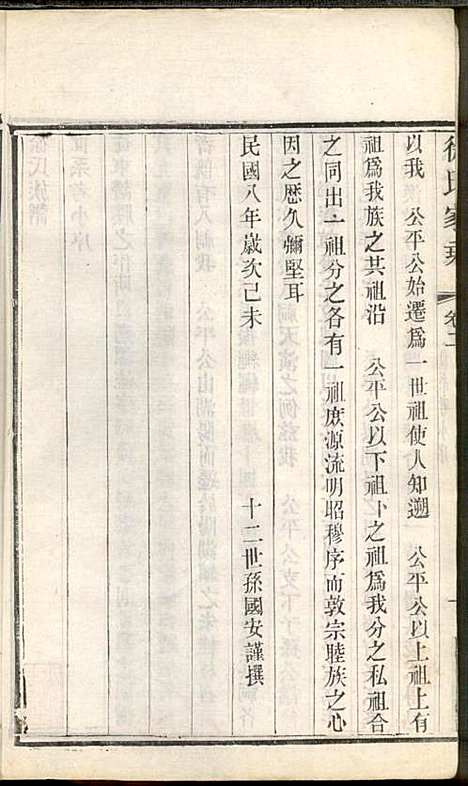 徐氏家乘 卷二
以我 公平公始遷爲一世祖使人知遡 公平公以上祖上有
祖爲我族之共祖沿 公平公以下祖下之祖爲我分之私祖合
之同出一祖分之各有一祖庶源流明昭穆序而敦宗睦族之心
因之歷久彌堅耳
民國八年歲次己未 十二世孫國安謹撰